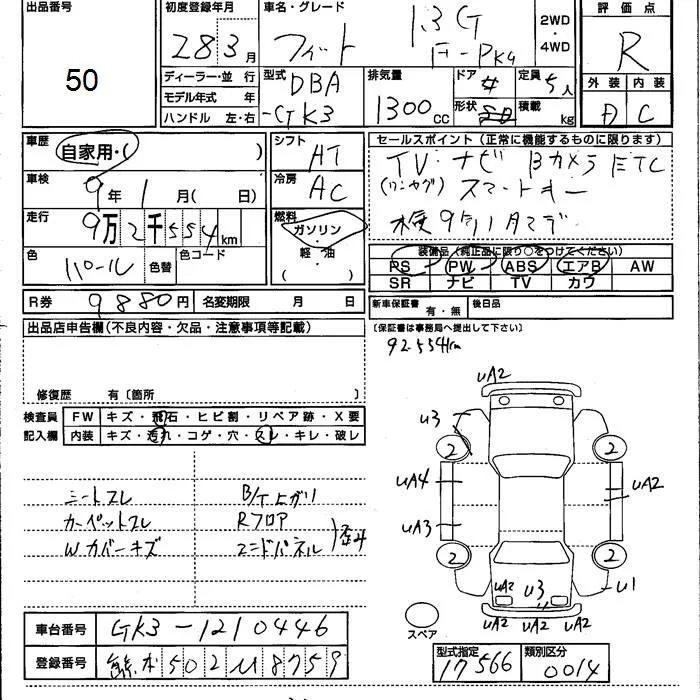 出品番号
50
初度登録年月
28 3月
ディーラー・並行
モデル年式 年
ハンドル 左・右
車名・グレード
フィット 1.3G
F-PKG
2WD
・
4WD
型式
DBA
-GK3
排気量
1300cc
ドア
形状
定員 5人
積載 kg
評価点
R
外装 内装
D C
車歴
自家用・( )
車検
9年 1月( 日)
走行
9万2千554km
色
パール
色替
色コード
シフト
AT
冷房
AC
燃料
ガソリン
・
軽油
( )
セールスポイント(正常に機能するものに限ります)
TV ナビ Bカメラ ETC
(ワンセグ) スマートキー
車検9年1月まで
装備品(純正品に限り○をつけてください)
PS PW ABS エアB AW
SR ナビ TV カワ
R券 9880円
名変期限 月 日
新車保証書 有・無
後日品
(保証書は事務局へ提出して下さい)
92.554km
出品店申告欄(不良内容・欠品・注意事項等記載)
修復歴 有〔箇所 〕
検査員
記入欄
FW キズ・飛石・ヒビ割・リペア跡・X要
内装 キズ・汚れ・コゲ・穴・スレ・キレ・破レ
シートスレ
カーペットスレ
Wカバーキズ
B/T上ガリ
Rフロア
エンドパネル
歪み
UA2
U3
2
2
UA4
UA2
UA3
2
2
U1
UA2
U3
UA2
UA2 UA2 UA2
スペア
車台番号 GK3-1210446
登録番号 熊本 502 ム 8759
型式指定
17566
類別区分
0014